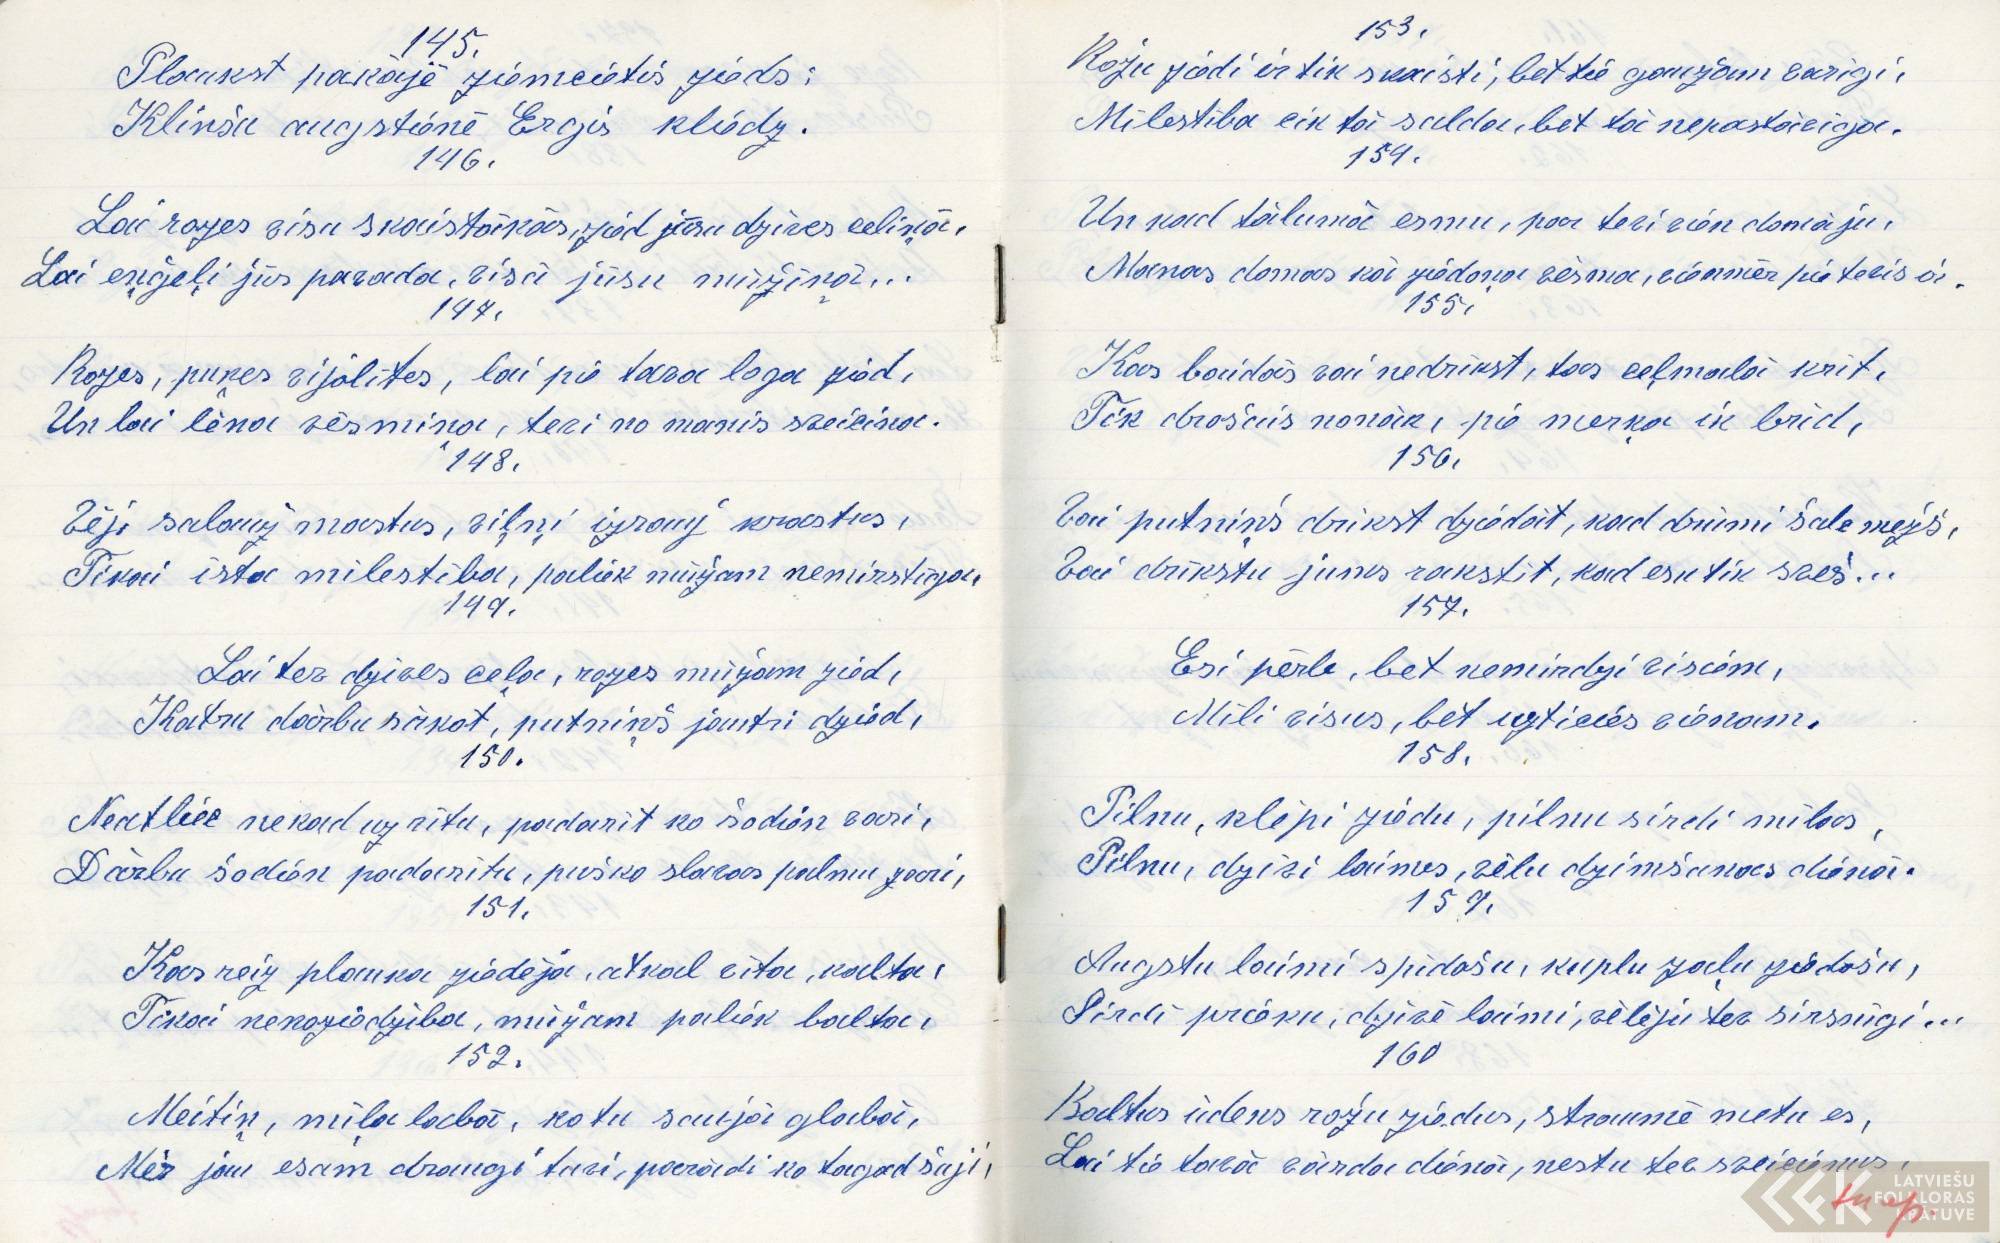 145.
Plaukst pakājē ziemcietis zieds:
Klinšu augstienē Ērgis kliedz.
146.
Lai rozes visu skaistākās, zied jūsu dzīves celiņā,
Lai eņģeļi jūs pavada, visā jūsu mūžiņā...
147.
Rozes, puķes vijolītes, lai pie tava loga zied,
Un lai lēna vēsmiņa, tevi no manis sveicina.
148.
Vēji salauž mastus, viļņi izrauj krastus,
Tikai īsta mīlestība, paliek mūžam nemirstīga,
149.
Lai tev dzīves ceļa, rozes mūžam zied,
Katru dārbu sākot, putniņš jautri dzied,
150.
Neatliec nekad uz rītu, padarīt ko šodien vari,
Dārbu šodien padarītu, puško slavas palmu zari,
151.
Kas reiz plauka ziedēja, atkal vīta, kalta,
Tikai nekoziedzība, mūžam paliek balta,
152.
Meitiņ, mīļa labā, ko tu saujā glabā,
Mēs jau esam draugi tavi, parādi ko tagad šuji,
153.
Rožu ziedi ir tik skaisti, bet tie gaužam varīgi,
Mīlestība cik tā salda, bet tā nepastāvīga.
154.
Un kad tālumā esmu, par tevi vien domāju,
Manas domas kā ziedoņa vēsma, vienmēr pie tevis ir.
155.
Kas baidās vai nedrīkst, tas ceļmalā krīt,
Tik drošais nonāk, pie merķa ik brīd,
156.
Vai putniņš drīkst dziedāt, kad drūmi šalc mežš,
Vai drīkstu jums rakstīt, kad esu tik svešš...
157.
Esi pērle, bet nemirdzi visiem,
Mīli visus, bet uzticies vienam.
158.
Pilnu, klēpi ziedu, pilnu sirdi mīlas,
Pilnu, dzīvi laimes, vēlu dzimšanas dienā.
159.
Augstu laimi spīdošu, kuplu zaļu ziedošu,
Sirdī prieku, dzīvē laimi, vēlēju tev sirsnīgi...
160
Baltus ūdens rožu ziedus, straumē metu es,
Lai tie tavā vārda dienā, nestu tev sveicienus,
LATVIEŠU
FOLKLORAS
KRĀTUVE